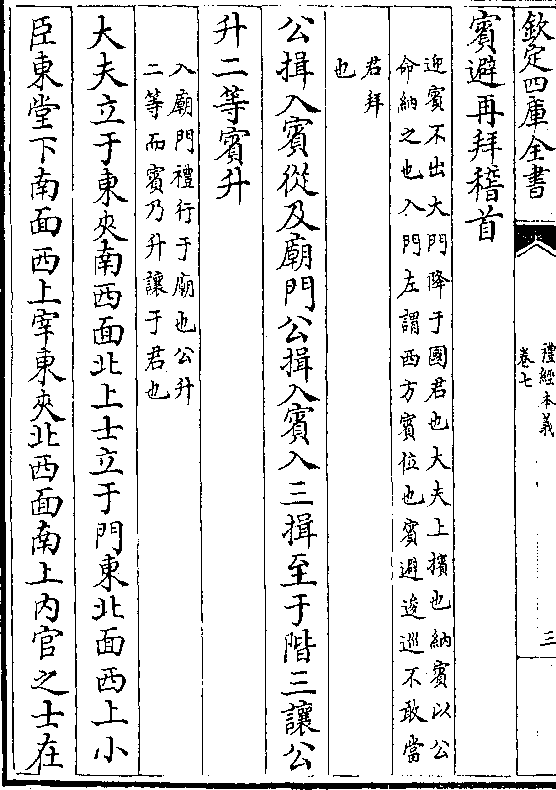 欽定四庫全書
禮經本義
卷七
三
賓避再拜稽首
迎賓不出大門降于國君也大夫上擯也納賓以公
命納之也入門左謂西方賓位也賓避逡巡不敢當
君拜
也
公揖入賓從及廟門公揖入賓入三揖至于階三讓公
升二等賓升
入廟門禮行于廟也公升
二等而賓乃升讓于君也
大夫立于東夾南西面北上士立于門東北面西上小
臣東堂下南面西上宰東夾北西面南上內官之士在